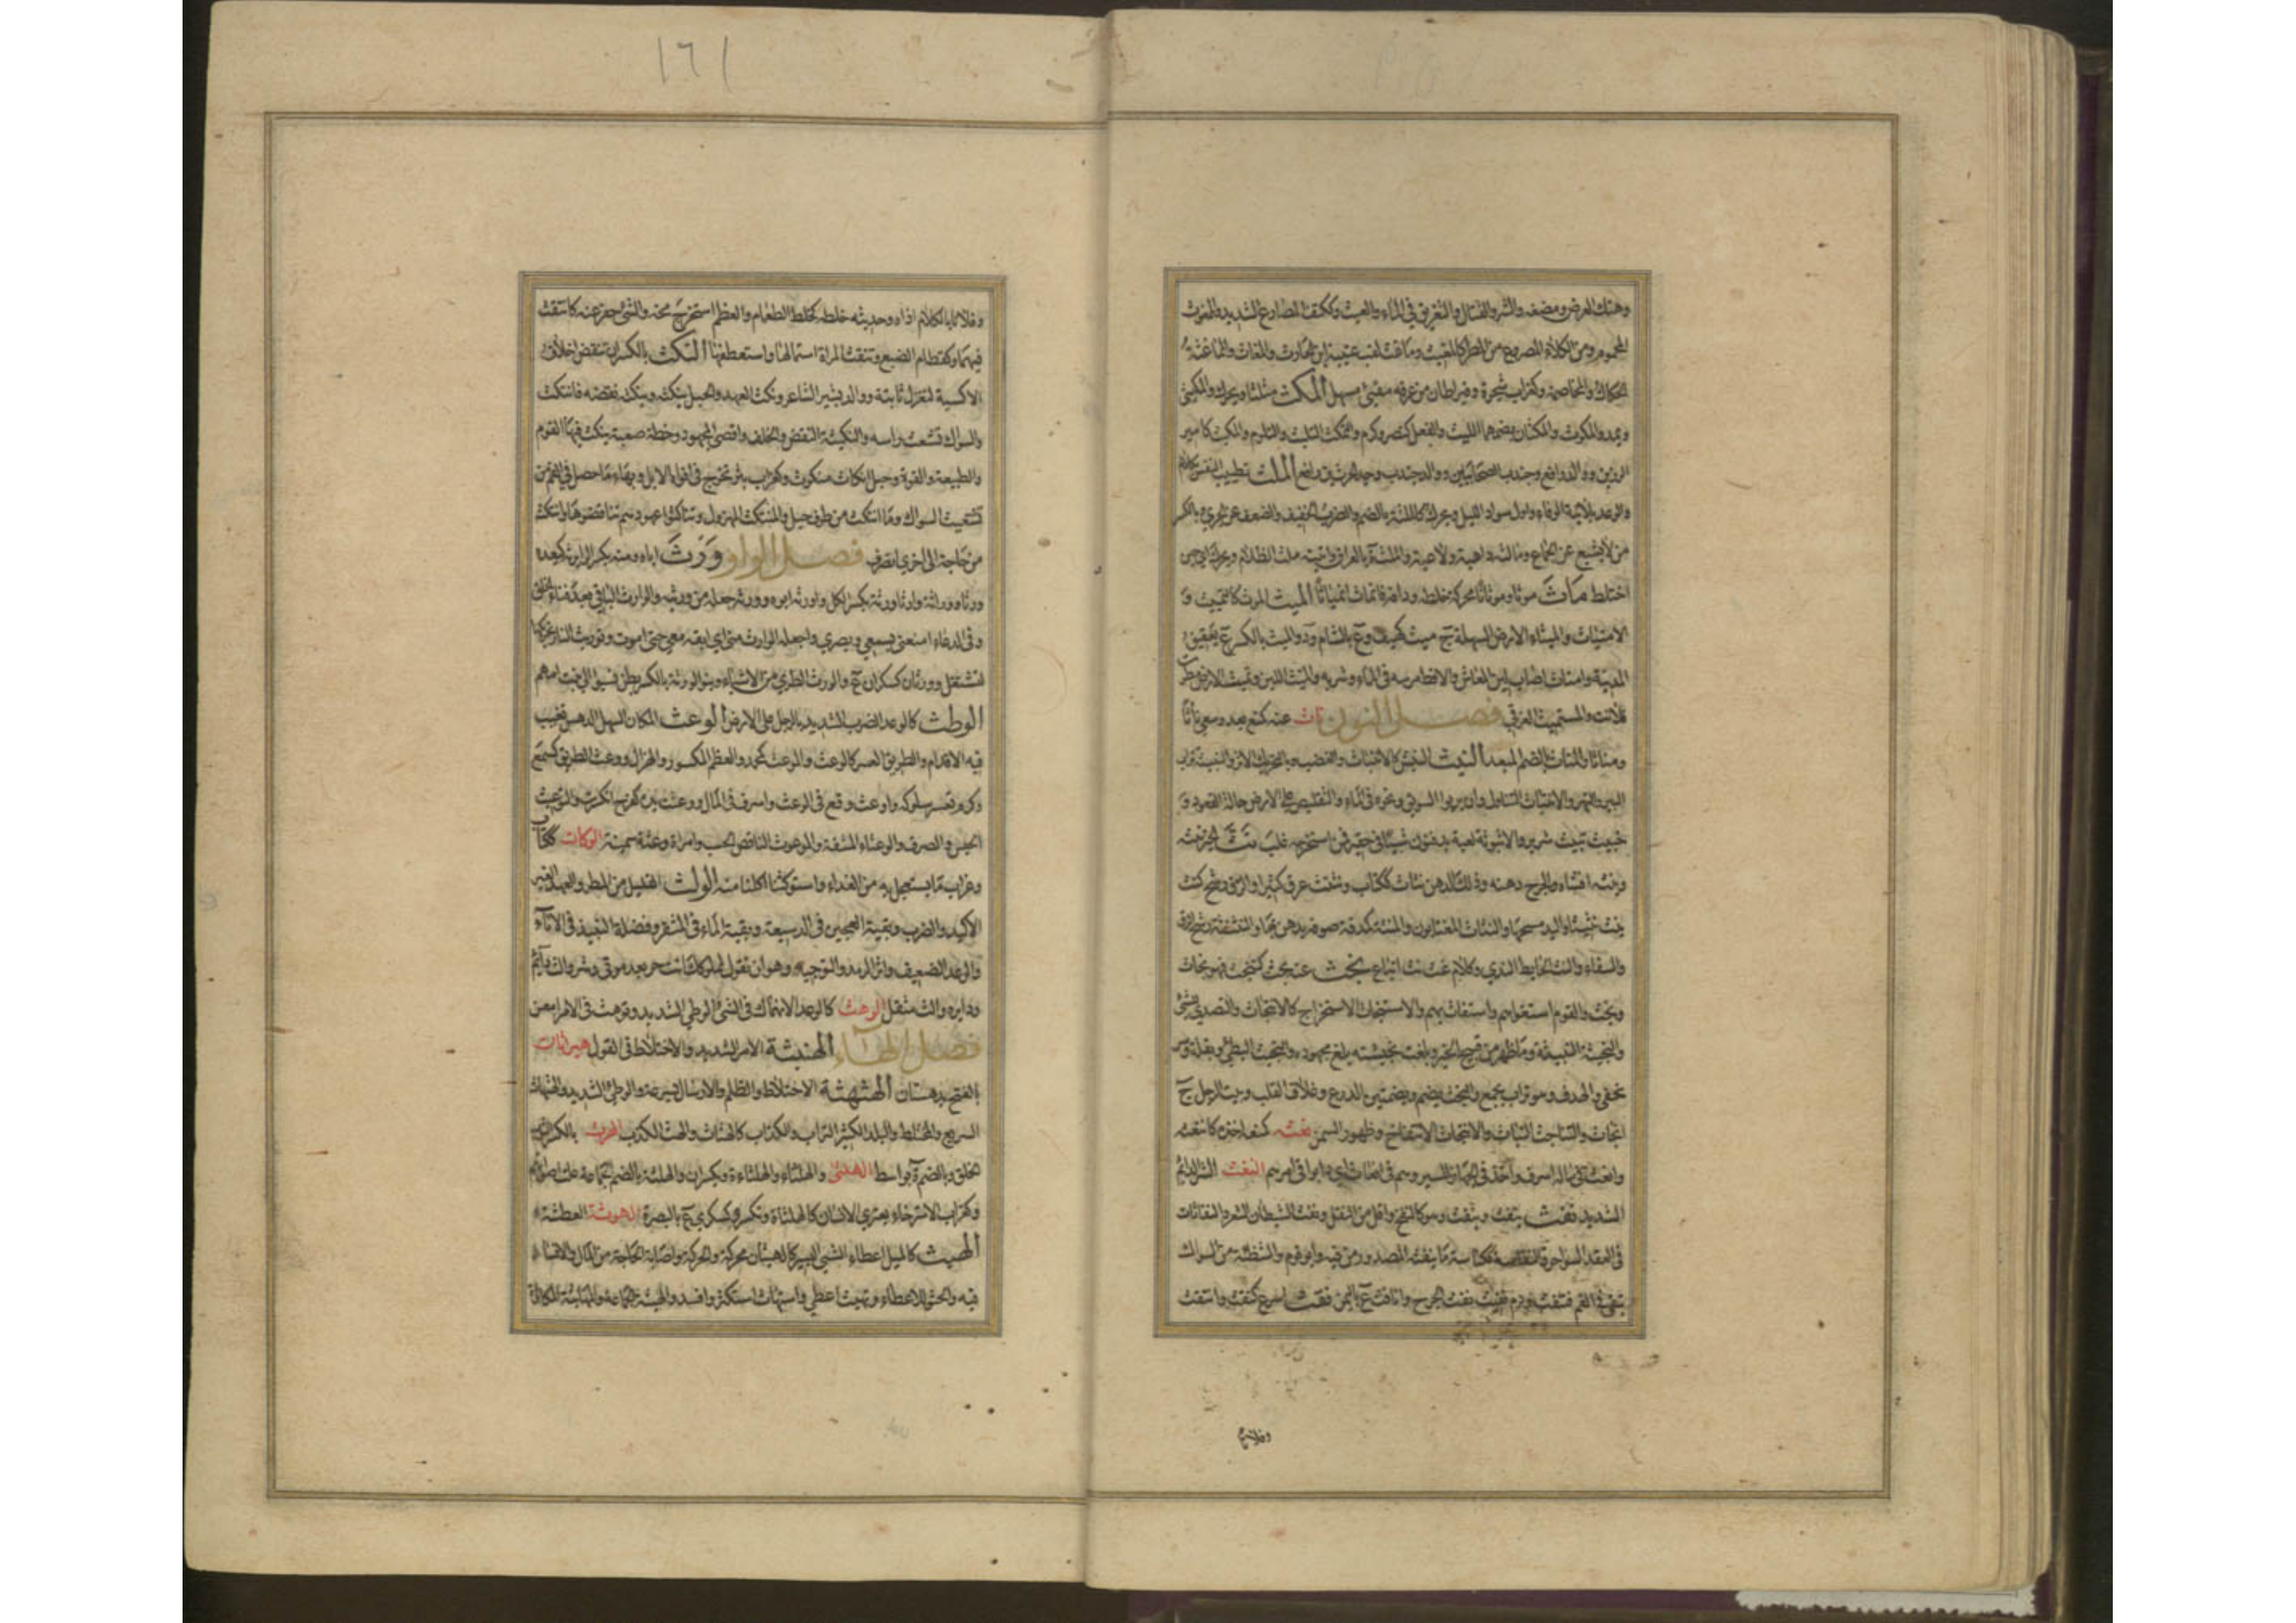 وهتك العرض ومضغه والشر والقتال والتغريق في الماء والعبث وككتف المصارع الشديد والممغوث
المحموم ومن الكلاء المصروع من المطر كالمغيث وماغث لقب عتيبة ابن الحارث والمغاث والماغثة
الحكاك والمخاصمة وكغراب شجرة وقيراطان من عرقه مقيئ مسهل المكث مثلثا ويحرك والمكيثى
ويمد والمكوث والمكثان بضمهما اللبث والفعل كنصر وكرم والتمكث التلبث والتلوم والمكيث كامير
الرزين ووالد رافع وجندب الصحابيين ووالد جندب وجد الحرث بن رافع الملث تطييب النفس بكلام
والوعد بلا نية الوفاء واول سواد الليل ويحرك كالملثة بالضم والضرب الخفيف والضعف عن الجري وبالكسر
من لا يشبع عن الجماع ومالثه داهنه ولاعبه والملثة بالعراق واتيته ملث الظلام ويحرك اي حين
اختلط ماث موثا وموثانا محركة خلطه ودافه فانماث انمياثا الميث الموث كالتمييث و
الامتياث والميثاء الارض السهلة ج ميث كهيف وع بالشام وذو الميث بالكسر ع بعقيق
المدينة وامتاث اصاب لين المعاش والاقط مرسه في الماء وشربه والميث اللين وتميثت الارض مطرت
فلانت والمستميث الغرقي فصل النون نأث عنه كمنع بعد وسعي نأثا
ومنأثا والمنأث بالضم المبعد النبث النبش كالانتباث والغضب وبالتحريك الاثر والنبيثة تراب
البير والنهر والانتباث التناول وان يربوا السويق ونحوه في الماء والتقليص علي الارض حالة القعود و
خبيث نبيث شرير والانبوثة لعبة يدفنون شيئا في حفير فمن استخرجه غلب نث الخبر ينثه
وينثه افشاه والجرح دهنه وذلك الدهن نثاث ككتاب ونثنث عرق كثيرا والزق رشح كنث
ينث نثيثا واليد مسحها والنثاث المغتابون والمنثة كمدقة صوفة يدهن بها والنثنثة رشح الزق
والسقاء والنث الحايط الندي وكلام غث نث اتباع نجث عنه بحث كتنجث فهو نجاث
ونجث والقوم استغواهم واستغاث بهم والاستنجاث الاستخراج كالانتجاث والتصدي للشئ
والنجيثة النبيثة وما ظهر من قبيح الخبر وبلغت نجيثته بلغ مجهوده والنجيث البطئ وبقلة وسر
يخفى والهدف وهو تراب يجمع والنجث بضم وبضمتين الدرع وغلاف القلب وبيت الرجل ج
انجاث والتناجث التباث والانتجاث الانتفاخ وظهور السمن نعثه كمنعه اخذه كانتعثه
وانعث في ماله اسرف واخذ في الجهاز للمسير وهم في انعاث اي دابوا في امرهم النغث الشر الدائم
الشديد نفث ينفث وينفث وهو كالنفخ واقل من التفل ونفث الشيطان الشعر والنفاثات
في العقد السواحر والنفاثة ككناسة ما ينفثه المصدور من فيه وابو قوم والشظئة من السواك
تبقى في الفم فتنفث ودم نفيث نفثه الجرح وانافث ع باليمن نقث اسرع كنقث وانتقث
وفلانا بالكلام
١٦١
وفلانا بالكلام اذاه وحديثه خلطه كخلط الطعام والعظم استخرج مخه والشئ حفر عنه كانتقث
فيهما وكقطام الضبع وتنقث المراة استمالها واستعطفها النكث بالكسر ان تنقض اخلاق
الاكسية لتغزل ثانية ووالد بشير الشاعر ونكث العهد والحبل ينكثه وينكثه نقضه فانتكث
والسواك تشعث راسه والنكيثة النقض والخلف واقصى المجهود وخطة صعبة ينكث فيها القوم
والطبيعة والقوة وحبل انكاث منكوث وكغراب بثر تخرج في افواه الابل وبهاء ما حصل في الفم من
تشعيث السواك وما انتكث من طرف حبل والمنتكث المهزول وتناكثوا عهودهم تناقضوها وانتكث
من حاجة الى اخرى انصرف فصل الواو ورث اباه ومنه بكسر الراء يرثه كيعده
ورثا ووراثة وارثا ورثة بكسر الكل واورثه ابوه وورثه جعله من ورثته والوارث الباقي بعد فناء الخلق
وفي الدعاء امتعني بسمعي وبصري واجعله الوارث مني اي ابقه معي حتى اموت وتوريث النار تحريكها
لتشتعل وورثان كسكران ع والورث الطري من الاشياء وبنو الورثة بالكسر بطن نسبوا الى امهم
الوطث كالوعد الضرب الشديد بالرجل على الارض الوعث المكان السهل الدهس تغيب
فيه الاقدام والطريق العسر كالوعث والموعث كمحمد والعظم المكسور والهزال ووعث الطريق كسمع
وكرم تعسر سلوكه واوعث وقع في الوعث واسرف في المال ووعثت يده كفرح انكسرت والتوعيث
الحبس والصرف والوعثاء المشقة والموعوث الناقص الحسب وامراة وعثة سمينة الوكاث ككتاب
وغراب ما يستعجل به من الغداء واستوكثنا اكلنا منه الولث القليل من المطر والعهد الغير
الاكيد والضرب وبقية العجين في الدسيعة وبقية الماء في المشقر وفضلة النبيذ في الاناء
والوعد الضعيف واثر الرمد والتوجيه وهو ان تقول لمملوكك انت حر بعد موتي وشر والث دائم
ودابره والث مثقل الوهث كالوعد الانهماك في الشئ والوطي الشديد وتوهث في الامر امعن
فصل الهاء الهنبثة الامر الشديد والاختلاط في القول هبراثان
بالفتح بدهستان الهثهثة الاختلاط والظلم والارسال بسرعة والوطئ الشديد والهثهاث
السريع والمختلط والبلد الكثير التراب والكذاب كالهثاث والهث الكذب الهرث بالكسر الثوب
الخلق وبالضم ة بواسط الهلثى والهلثاء والهلثاءة ويكسران والهلثة بالضم جماعة علت اصواتهم
وكغراب الاسترخاء يعتري الانسان كالهلثاة وتكسر وكسكرى ع بالبصرة الهوثة العطشة
الهيث كالميل اعطاء الشئ اليسير كالهيثان محركة والحركة واصابة الحاجة من المال والافساد
فيه والحثو للاعطاء وتهيث اعطي واستهاث استكثر وافسد والهيثة الجماعة والمهايثة المكاثرة